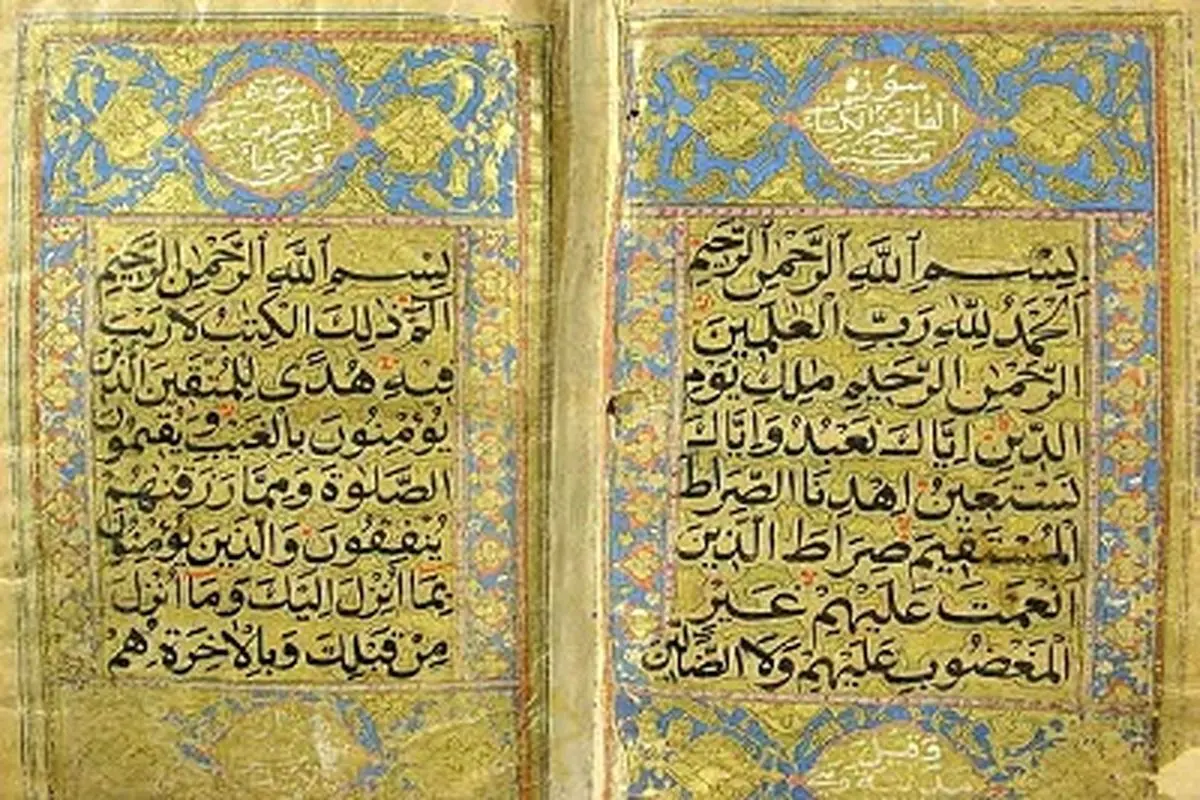 سورة
الفاتحة الكتاب
مكية
بِسْمِ ٱللَّهِ ٱلرَّحْمٰنِ ٱلرَّحِيْمِ
اَلْحَمْدُ لِلّٰهِ رَبِّ الْعٰلَمِينَ
الرَّحْمٰنِ الرَّحِيْمِ مٰلِكِ يَوْمِ
الدِّيْنِ اِيَّاكَ نَعْبُدُ وَاِيَّاكَ
نَسْتَعِيْنُ اِهْدِنَا الصِّرَاطَ
الْمُسْتَقِيْمَ صِرَاطَ الَّذِيْنَ
اَنْعَمْتَ عَلَيْهِمْ غَيْرِ
الْمَغْضُوْبِ عَلَيْهِمْ وَلَا الضَّالِّيْنَ
وقيل
سورة
البقرة
بِسْمِ ٱللَّهِ ٱلرَّحْمٰنِ ٱلرَّحِيْمِ
الٓمٓ ذٰلِكَ الْكِتٰبُ لَا رَيْبَ
فِيْهِ هُدًى لِلْمُتَّقِيْنَ الَّذِيْنَ
يُؤْمِنُوْنَ بِالْغَيْبِ وَيُقِيْمُوْنَ
الصَّلٰوةَ وَمِمَّا رَزَقْنٰهُمْ
يُنْفِقُوْنَ وَالَّذِيْنَ يُؤْمِنُوْنَ
بِمَا اُنْزِلَ اِلَيْكَ وَمَا اُنْزِلَ
مِنْ قَبْلِكَ وَبِالْاٰخِرَةِ هُمْ